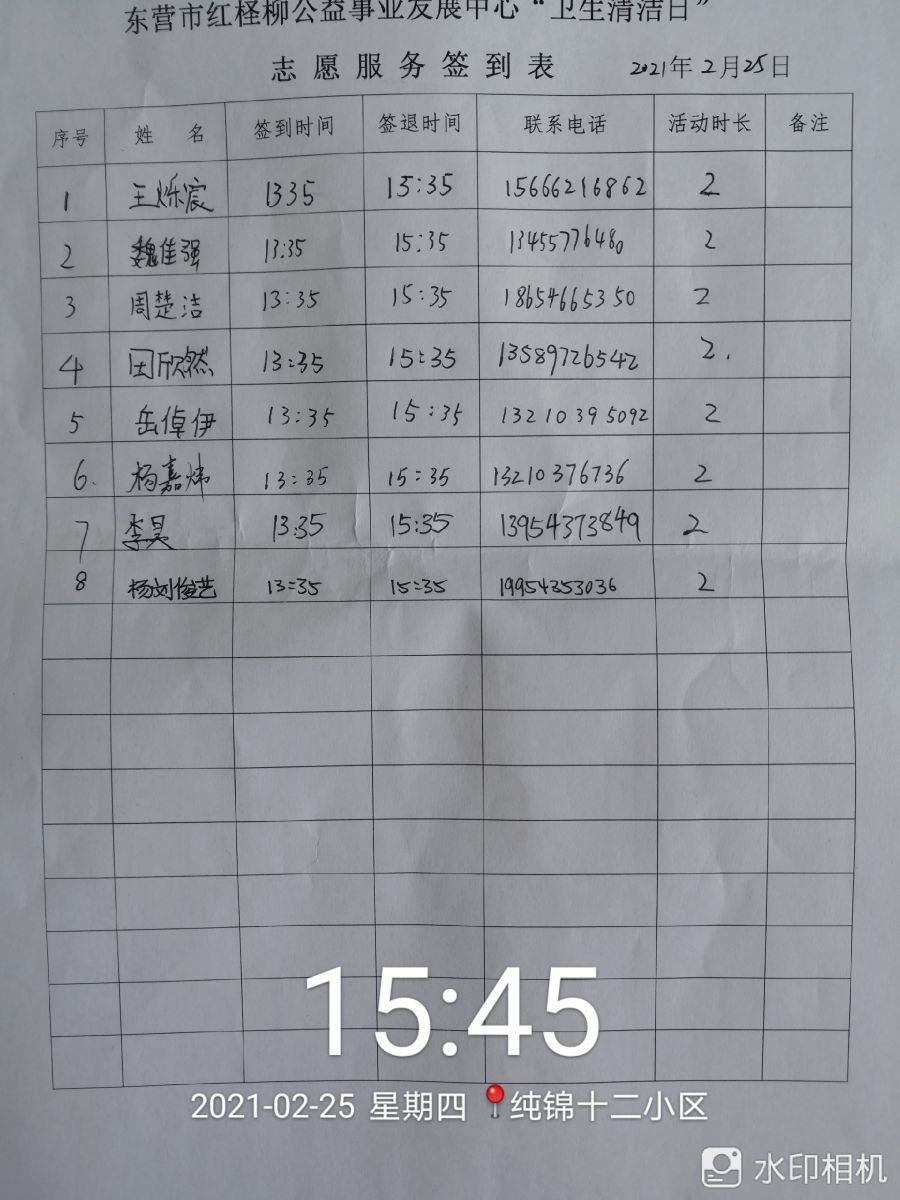 东营市红柽柳公益事业发展中心“卫生清洁日”
志愿服务签到表 2021年2月25日
序号 姓名 签到时间 签退时间 联系电话 活动时长 备注
1 王烁宸 1335 15:35 15666216862 2
2 魏佳强 13:35 15:35 13455776480 2
3 周楚洁 13:35 15:35 18654665350 2
4 田欣然 13:35 15:35 13589726542 2.
5 岳倬伊 13:35 15:35 13210395092 2
6. 杨嘉炜 13:35 15:35 13210376736 2
7 李昊 13:35 15:35 13954373849 2
8 杨刘俊艺 13:35 15:35 19954353036 2
15:45
2021-02-25 星期四 纯锦十二小区
水印相机